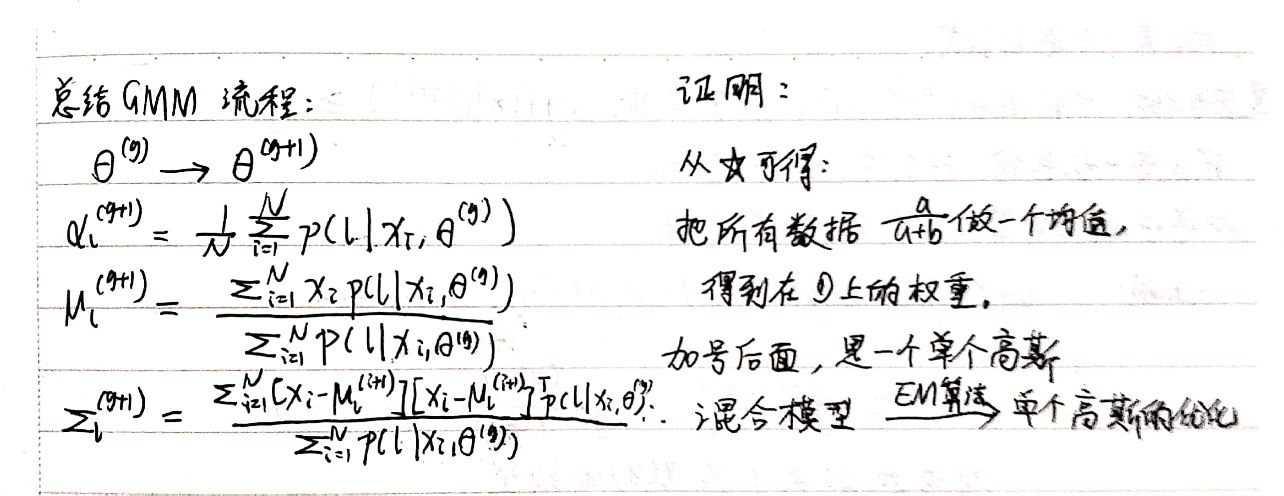 总结 GMM 流程:
θ^(g) → θ^(g+1)
α_l^(g+1) = 1/N Σ_{i=1}^N p(l|x_i, θ^(g))
μ_l^(g+1) = Σ_{i=1}^N x_i p(l|x_i, θ^(g)) / Σ_{i=1}^N p(l|x_i, θ^(g))
Σ_l^(g+1) = Σ_{i=1}^N [x_i-μ_l^(i+1)][x_i-μ_l^(i+1)]^T p(l|x_i, θ^(g)) / Σ_{i=1}^N p(l|x_i, θ^(g))
证明:
从☆可得:
把所有数据 a/(a+b) 做一个均值,
得到在①上的权重。
加号后面,是一个单个高斯
混合模型 —EM算法→ 单个高斯的优化